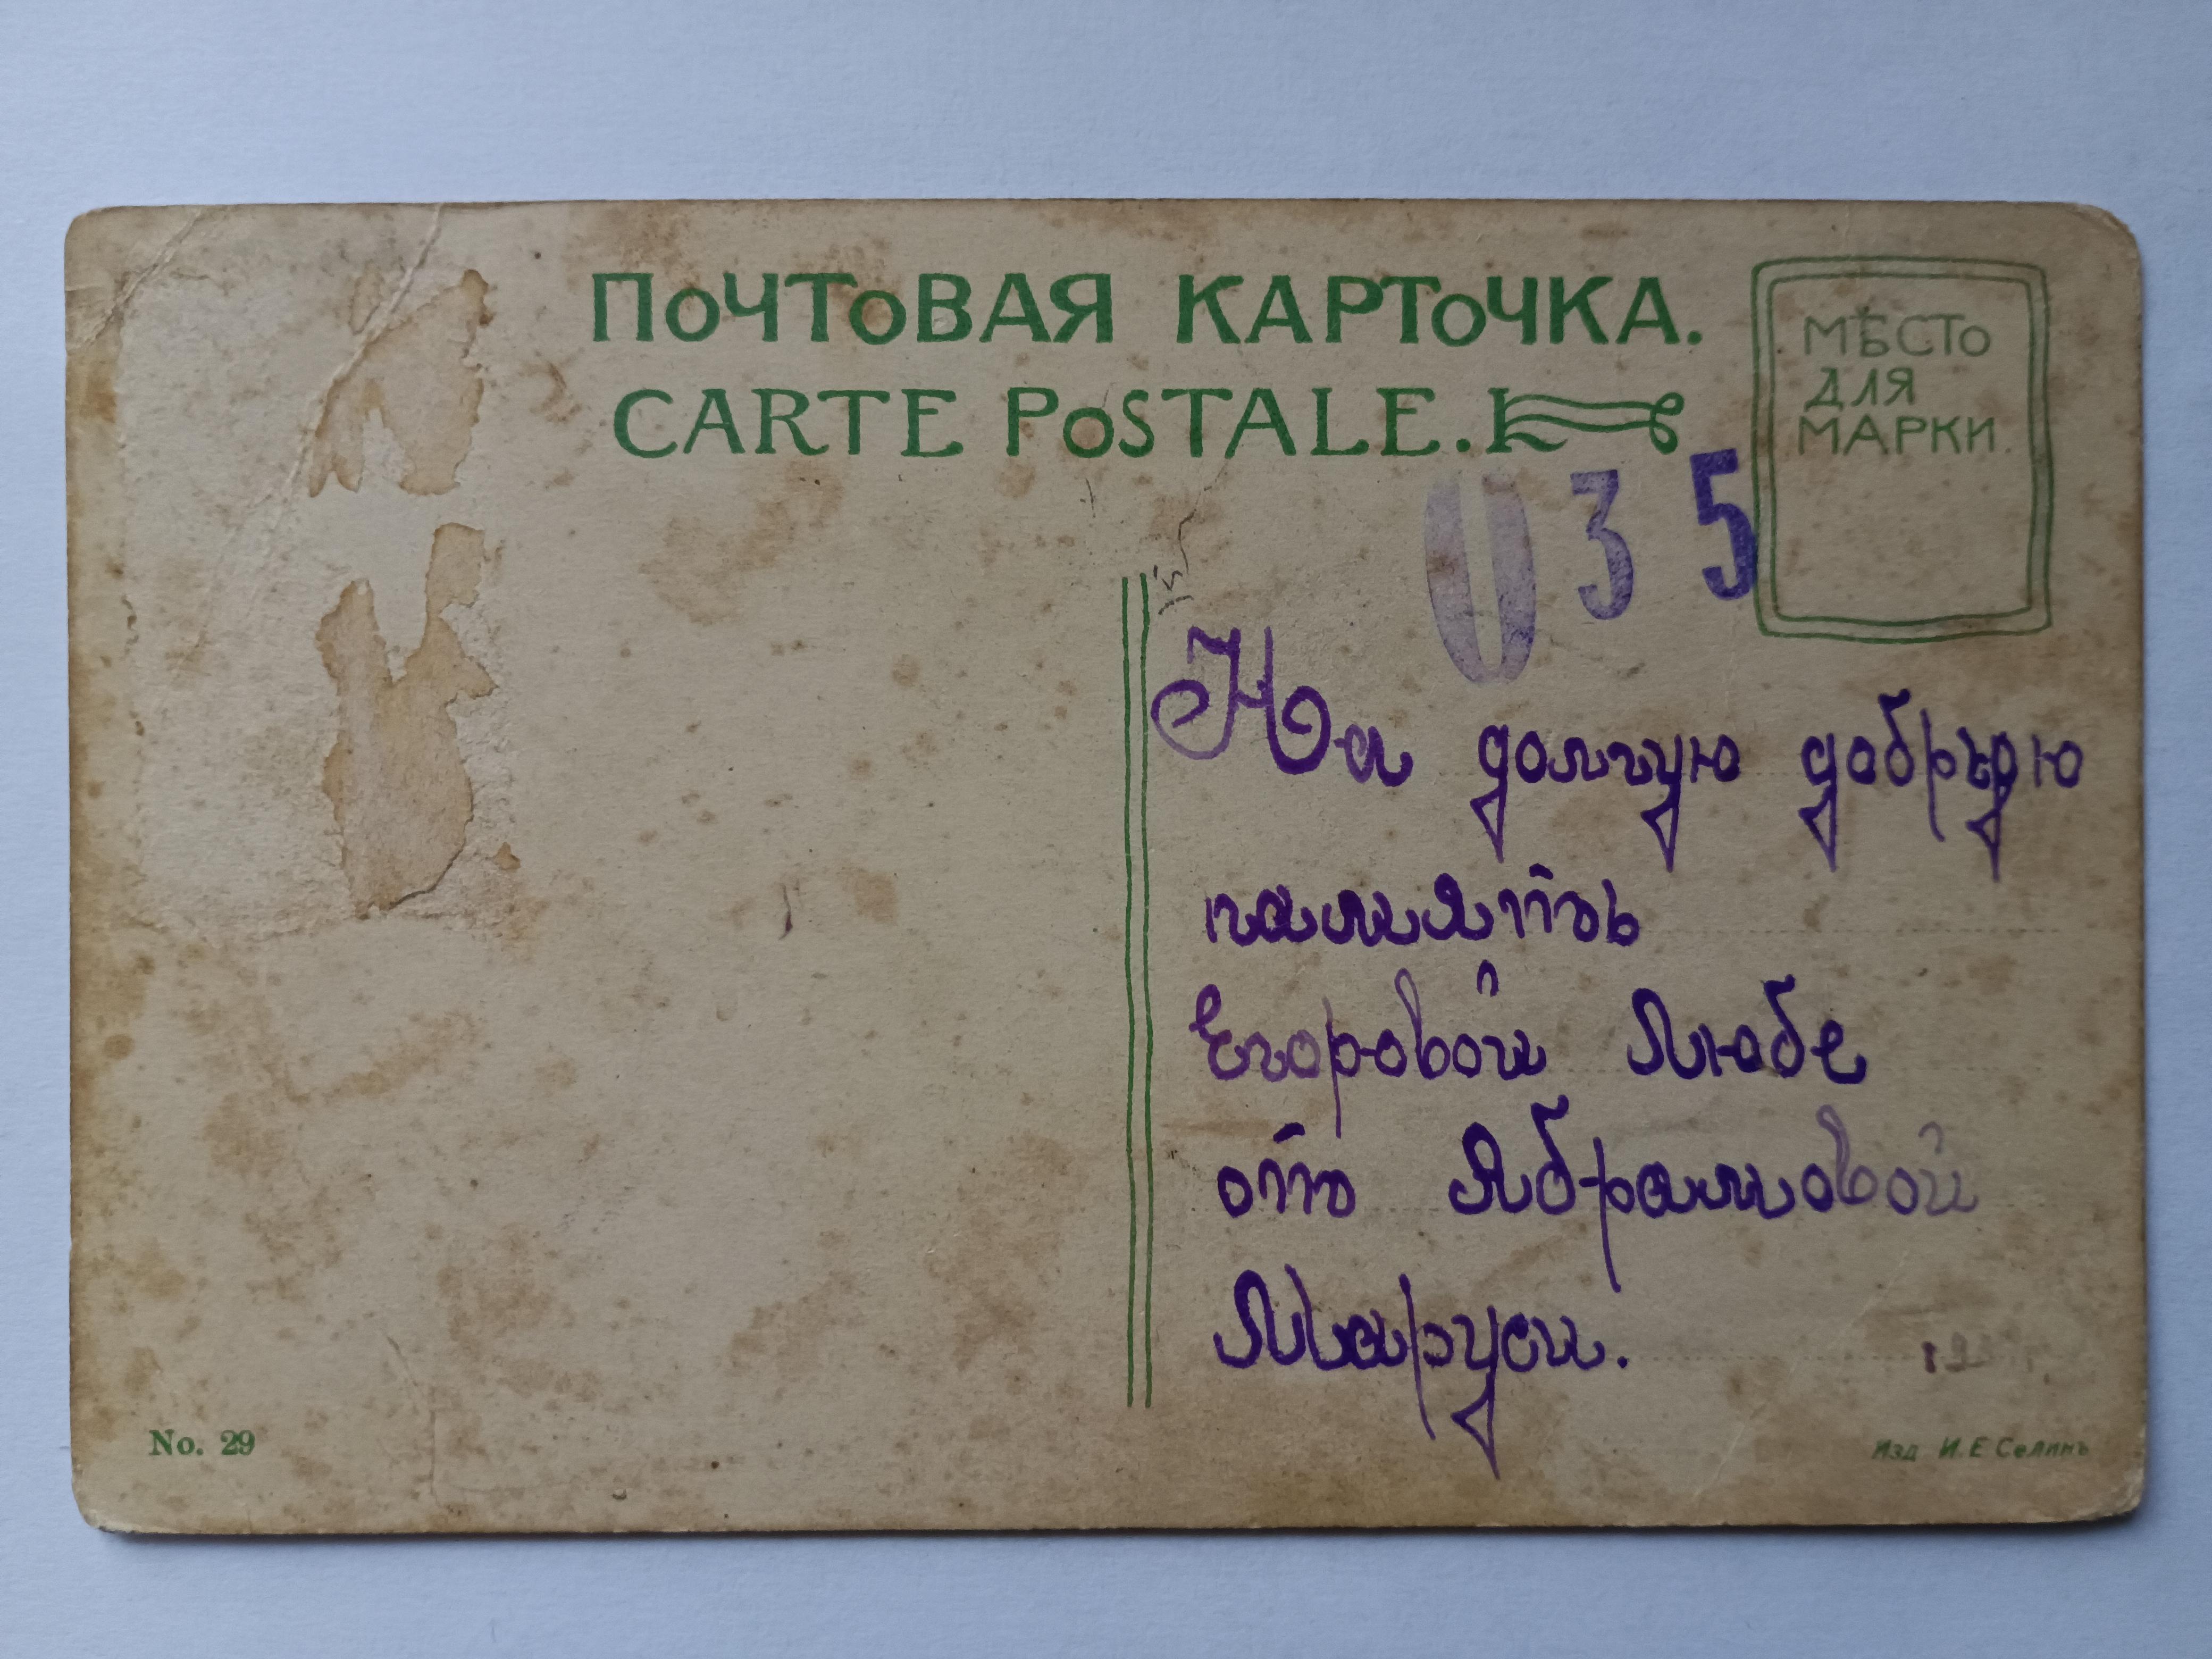 ПОЧТОВАЯ КАРТОЧКА.
CARTE POSTALE.
МѢСТО
ДЛЯ
МАРКИ.
035
На долгую добрую
память
Егоровой Любе
отъ Абрамовой
Маруси.
No. 29
Изд И. Е Селинъ